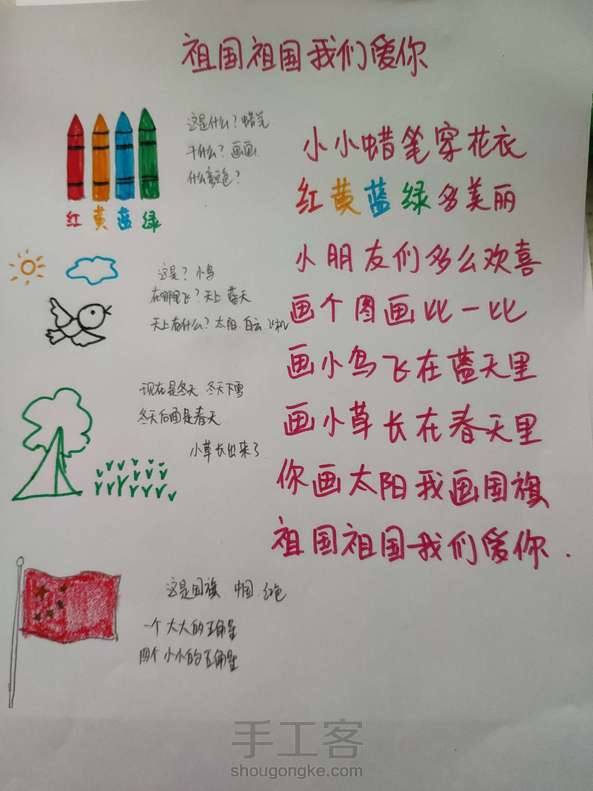 祖国祖国我们爱你
这是什么？蜡笔
干什么？画画
什么颜色？
红 黄 蓝 绿
小小蜡笔穿花衣
红黄蓝绿多美丽
小朋友们多么欢喜
画个图画比一比
画小鸟飞在蓝天里
画小草长在春天里
你画太阳我画国旗
祖国祖国我们爱你.
这是？小鸟
在哪里飞？天上 蓝天
天上有什么？太阳 白云 飞机
现在是冬天 冬天下雪
冬天后面是春天
小草长出来了
这是国旗 中国 红色
一个大大的五角星
四个小小的五角星
手工客
shougongke.com